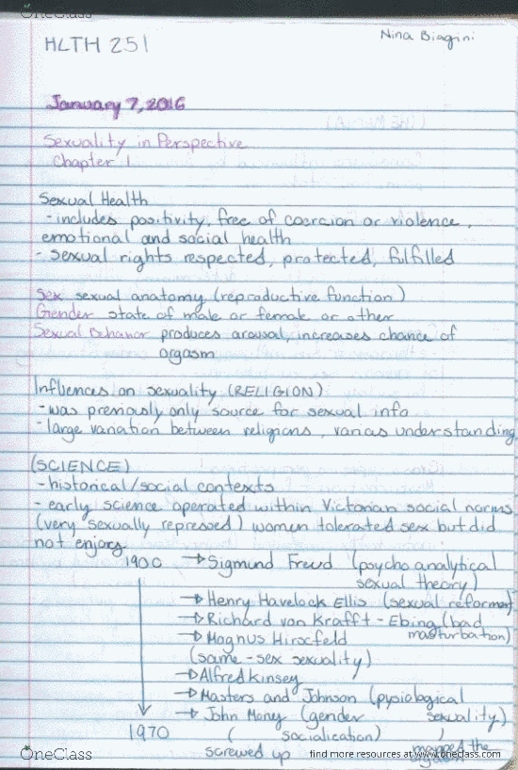 OneClass
Nina Biagini
HLTH 251
January 7, 2016
Sexuality in Perspective
Chapter 1
Sexual Health
- includes positivity, free of coercion or violence,
emotional and social health
- Sexual rights respected, protected, fulfilled
Sex sexual anatomy (reproductive function)
Gender state of male or female or other
Sexual Behavior produces arousal, increases chance of
orgasm
Influences on sexuality (RELIGION)
- was previously only source for sexual info
- large variation between religions, various understanding
(SCIENCE)
- historical/social contexts
- early science operated within Victorian social norms
(very sexually repressed) women tolerated sex but did
not enjoy
1900 → Sigmund Freud (psycho analytical
sexual theory)
→ Henry Havelock Ellis (sexual reformer)
→ Richard von Krafft - Ebing (bad
masturbation)
→ Magnus Hirscfeld
(same-sex sexuality)
→ Alfred Kinsey
→ Masters and Johnson (pysiological
sexuality)
→ John Money (gender
1970 ( socialication) )
screwed up mapped the
OneClass find more resources at www.oneclass.com